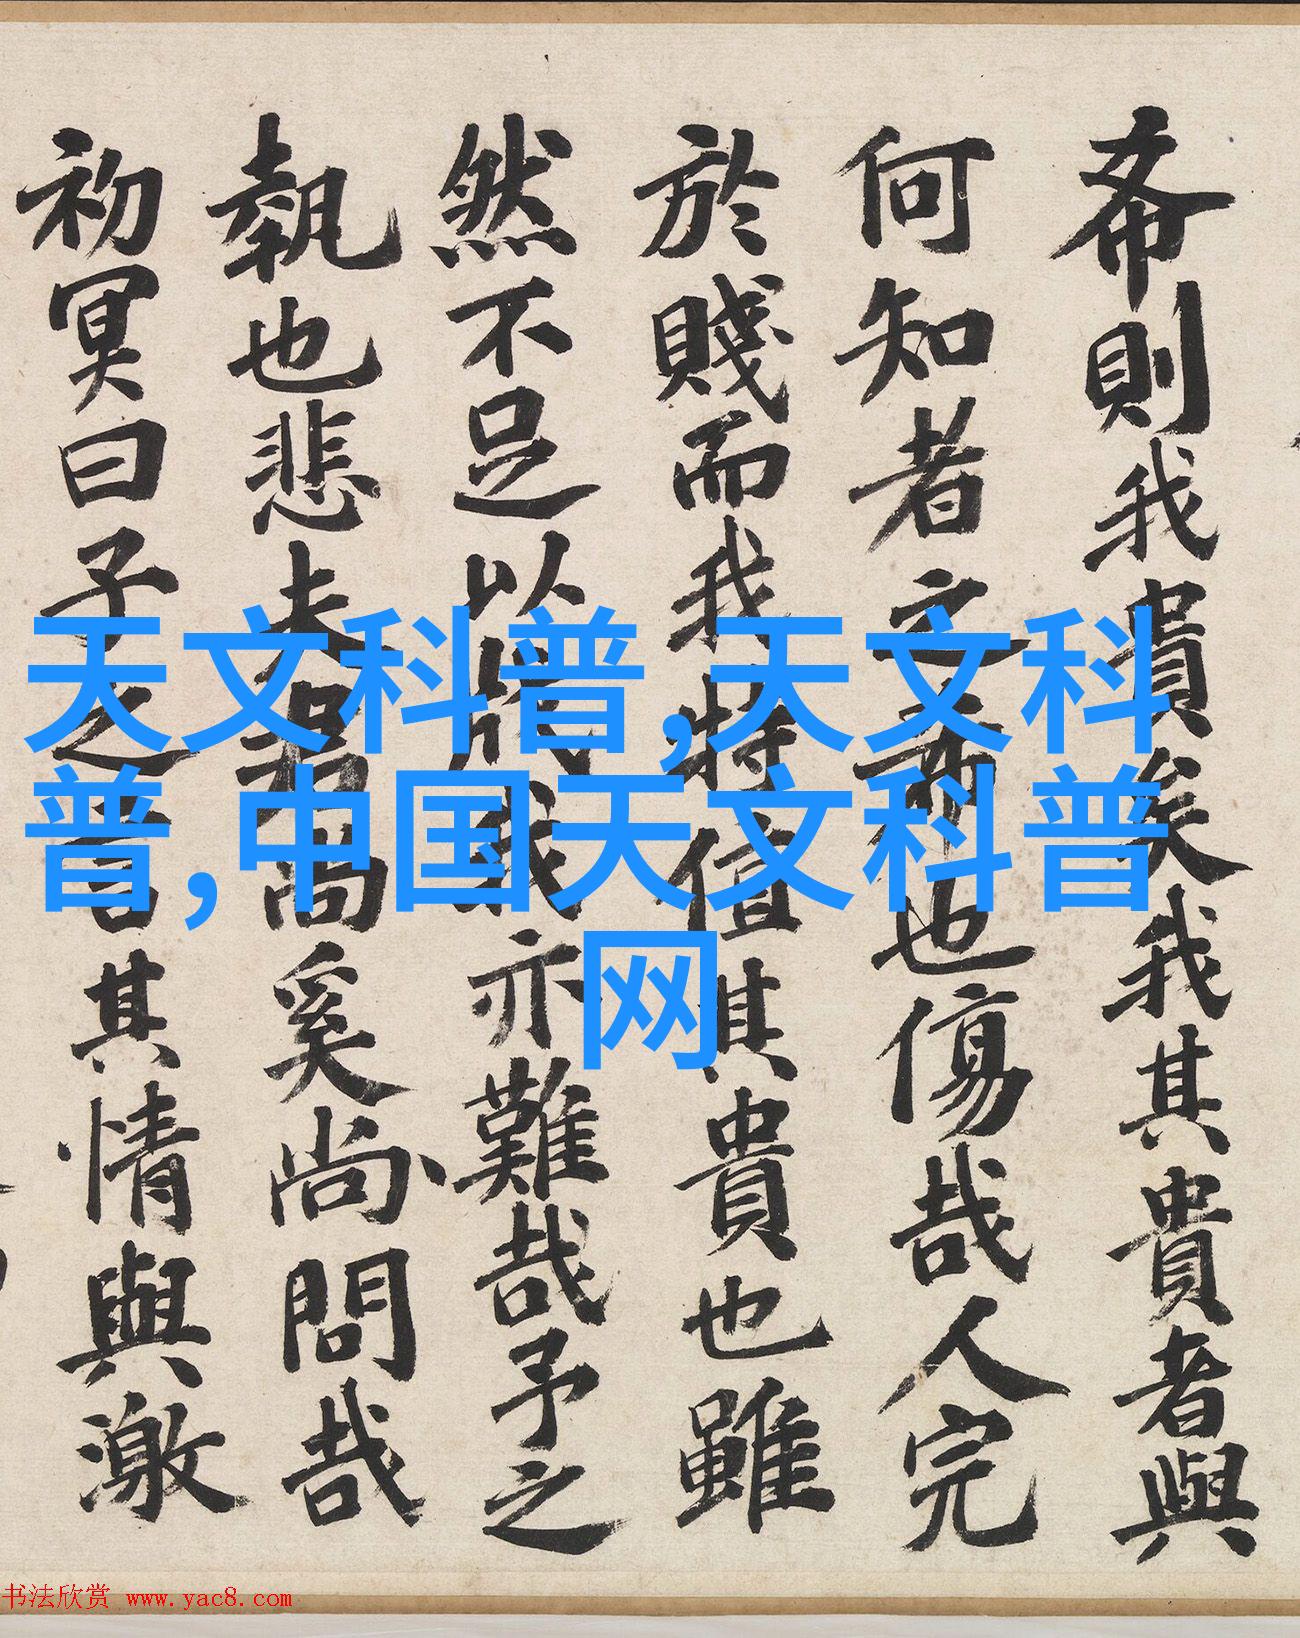 希則我貴矣我其貴者與
何知者之希也傷哉人完
於賤而我特值其貴也雖
然不足以戕我亦難哉予之
執也悲夫君尚奚尚問哉
初冥曰子之言其情與激
天文科普,天文科
普,中国天文科普
网
书法欣赏 www.yac8.com